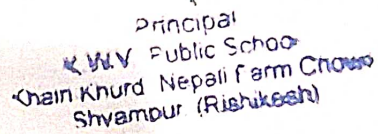 Principal
K.W.V Public School
Khairi Khurd Nepali Farm Chowk
Shyampur (Rishikesh)